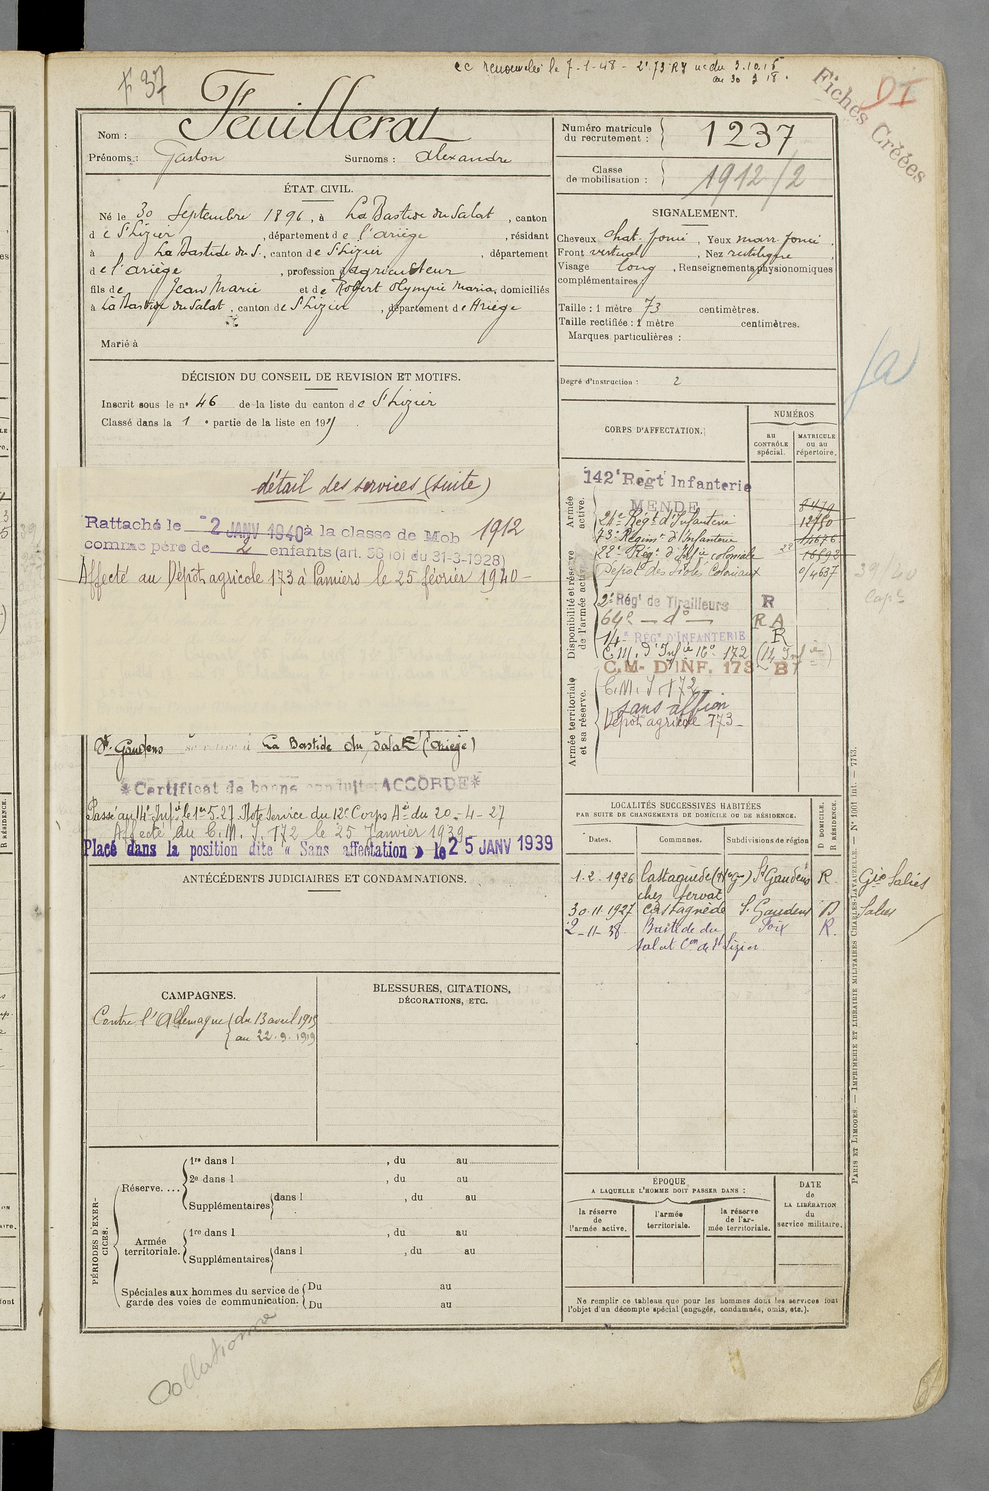 cc renouvelé le 7-1-48 - 2e 73 RI
Fiches Créées
DI
Nom : Feuillerat
Prénoms : Gaston Surnoms : Alexandre
Numéro matricule du recrutement : 1237
Classe de mobilisation : 1912/2
ÉTAT CIVIL.
Né le 30 Septembre 1896, à La Bastide du Salat, canton
de St Lizier, département de l'ariège, résidant
à La Bastide du S., canton de St Lizier, département
de l'ariège, profession d'agriculteur
fils de Jean Marie et de Olympie Maria, domiciliés
à La Bastide du Salat, canton de St Lizier, département de Ariège
Marié à
SIGNALEMENT.
Cheveux chat. foncé, Yeux marr. foncé,
Front vertical, Nez rectiligne,
Visage long, Renseignements physionomiques
complémentaires :
Taille : 1 mètre 73 centimètres.
Taille rectifiée : 1 mètre centimètres.
Marques particulières :
Degré d'instruction : 2
(a)
DÉCISION DU CONSEIL DE REVISION ET MOTIFS.
Inscrit sous le n° 46 de la liste du canton de St Lizier
Classé dans la 1e partie de la liste en 191
détail des services (suite)
Rattaché le 2 JANV 1940 à la classe de Mob 1912
comme père de 2 enfants (art. 58 loi du 31-3-1928)
Affecté au Dépôt agricole 173 à Pamiers le 25 février 1940 -
St Gaudens se retire à La Bastide du Salat (Ariège)
*Certificat de bonne conduite: ACCORDÉ*
Passé au 14e Inf. le 1er 5-27. Note Service du 12e Corps Aée du 20-4-27
Affecté du C.M. I. 172 le 25 Janvier 1939
Placé dans la position dite « Sans affectation » le 25 JANV 1939
CORPS D'AFFECTATION.
NUMÉROS
AU CONTRÔLE spécial.
MATRICULE ou au répertoire.
Armée active.
142e Regt Infanterie
MENDE
24e Régt d'Infanterie 12750
73e Régim. d'Infanterie
22e Rég. d'Infie coloniale
Disponibilité et réserve de l'armée active.
Dépôt des Isolés Coloniaux 0/4637
2e Rég' de Tirailleurs R
64e — do — RA
14e RÉGt D'INFANTERIE R
C.M. d'Infie No 172 (14 Infie)
C.M. D'INF. 173 - B7
Armée territoriale et sa réserve.
C.M. I. 172
sans affion
Dépôt agricole 173 -
39/40
LOCALITÉS SUCCESSIVES HABITÉES
PAR SUITE DE CHANGEMENTS DE DOMICILE OU DE RÉSIDENCE.
Dates. Communes. Subdivisions de région D DOMICILE. R RÉSIDENCE.
1.2.1926 Castagnède St Gaudens R Gie Salies
30.11.1927 Castagnède St Gaudens D Salies
2-11-38 Bastide du Salat Con de St Lizier Foix R.
ANTÉCÉDENTS JUDICIAIRES ET CONDAMNATIONS.
CAMPAGNES.
Contre l'Allemagne du 13 avril 1915
au 22.9.1919
BLESSURES, CITATIONS,
DÉCORATIONS, ETC.
PÉRIODES D'EXERCICES.
Réserve....
1re dans l , du au
2e dans l , du au
Supplémentaires dans l , du au
Armée territoriale.
1re dans l , du au
Supplémentaires dans l , du au
Spéciales aux hommes du service de garde des voies de communication.
Du au
Du au
ÉPOQUE
A LAQUELLE L'HOMME DOIT PASSER DANS :
la réserve de l'armée active.
l'armée territoriale.
la réserve de l'armée territoriale.
DATE de LA LIBÉRATION du service militaire.
Ne remplir ce tableau que pour les hommes dont les services font
l'objet d'un décompte spécial (engagés, condamnés, omis, etc.).
PARIS ET LIMOGES. — IMPRIMERIE ET LIBRAIRIE MILITAIRES CHARLES-LAVAUZELLE. — N° 1001 int. — 7713.
Collationné